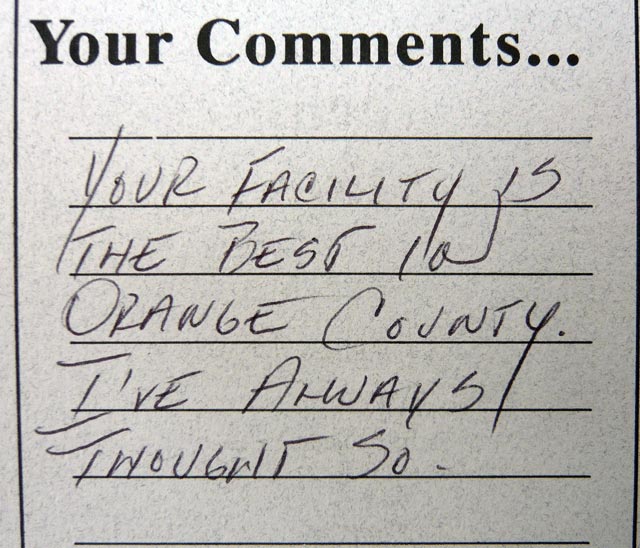 Your Comments...
YOUR FACILITY IS
THE BEST IN
ORANGE COUNTY.
I'VE ALWAYS
THOUGHT SO.